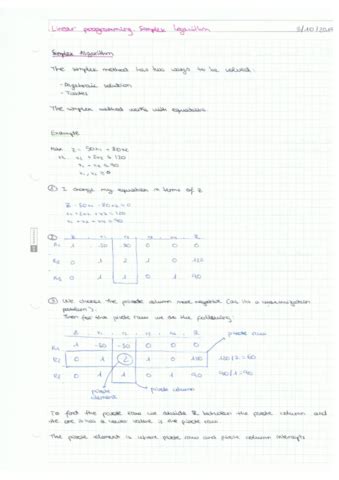 Linear programming. Simplex logarithm
Simplex Algorithm
The simplex method has two ways to be solved:
- Algebraic solution
- Tables
The simplex method works with equations
Example
x1 + 2x2 ≤ 120
x1 + x2 ≤ 90
① I change my equation in terms of Z
x1 + 2x2 + x3 = 120
x1 + x2 + x4 = 90
②
R1 1 -50 -80 0 0 0
R2 0 1 2 1 0 120
R3 0 1 1 0 1 90
③ We choose the pivote column more negative (as its a maximization
problem).
Then for the pivote row we do the following:
pivote row
R1 1 -50 -80 0 0 0
R2 0 1 ② 1 0 120 120/2 = 60
R3 0 1 1 0 1 90 90/1 = 90
pivote element
pivote column
To find the pivote row we divide R between the pivote column and
the one it has a lower value is the pivote row.
The pivote element is where pivote row and pivote column intercepts